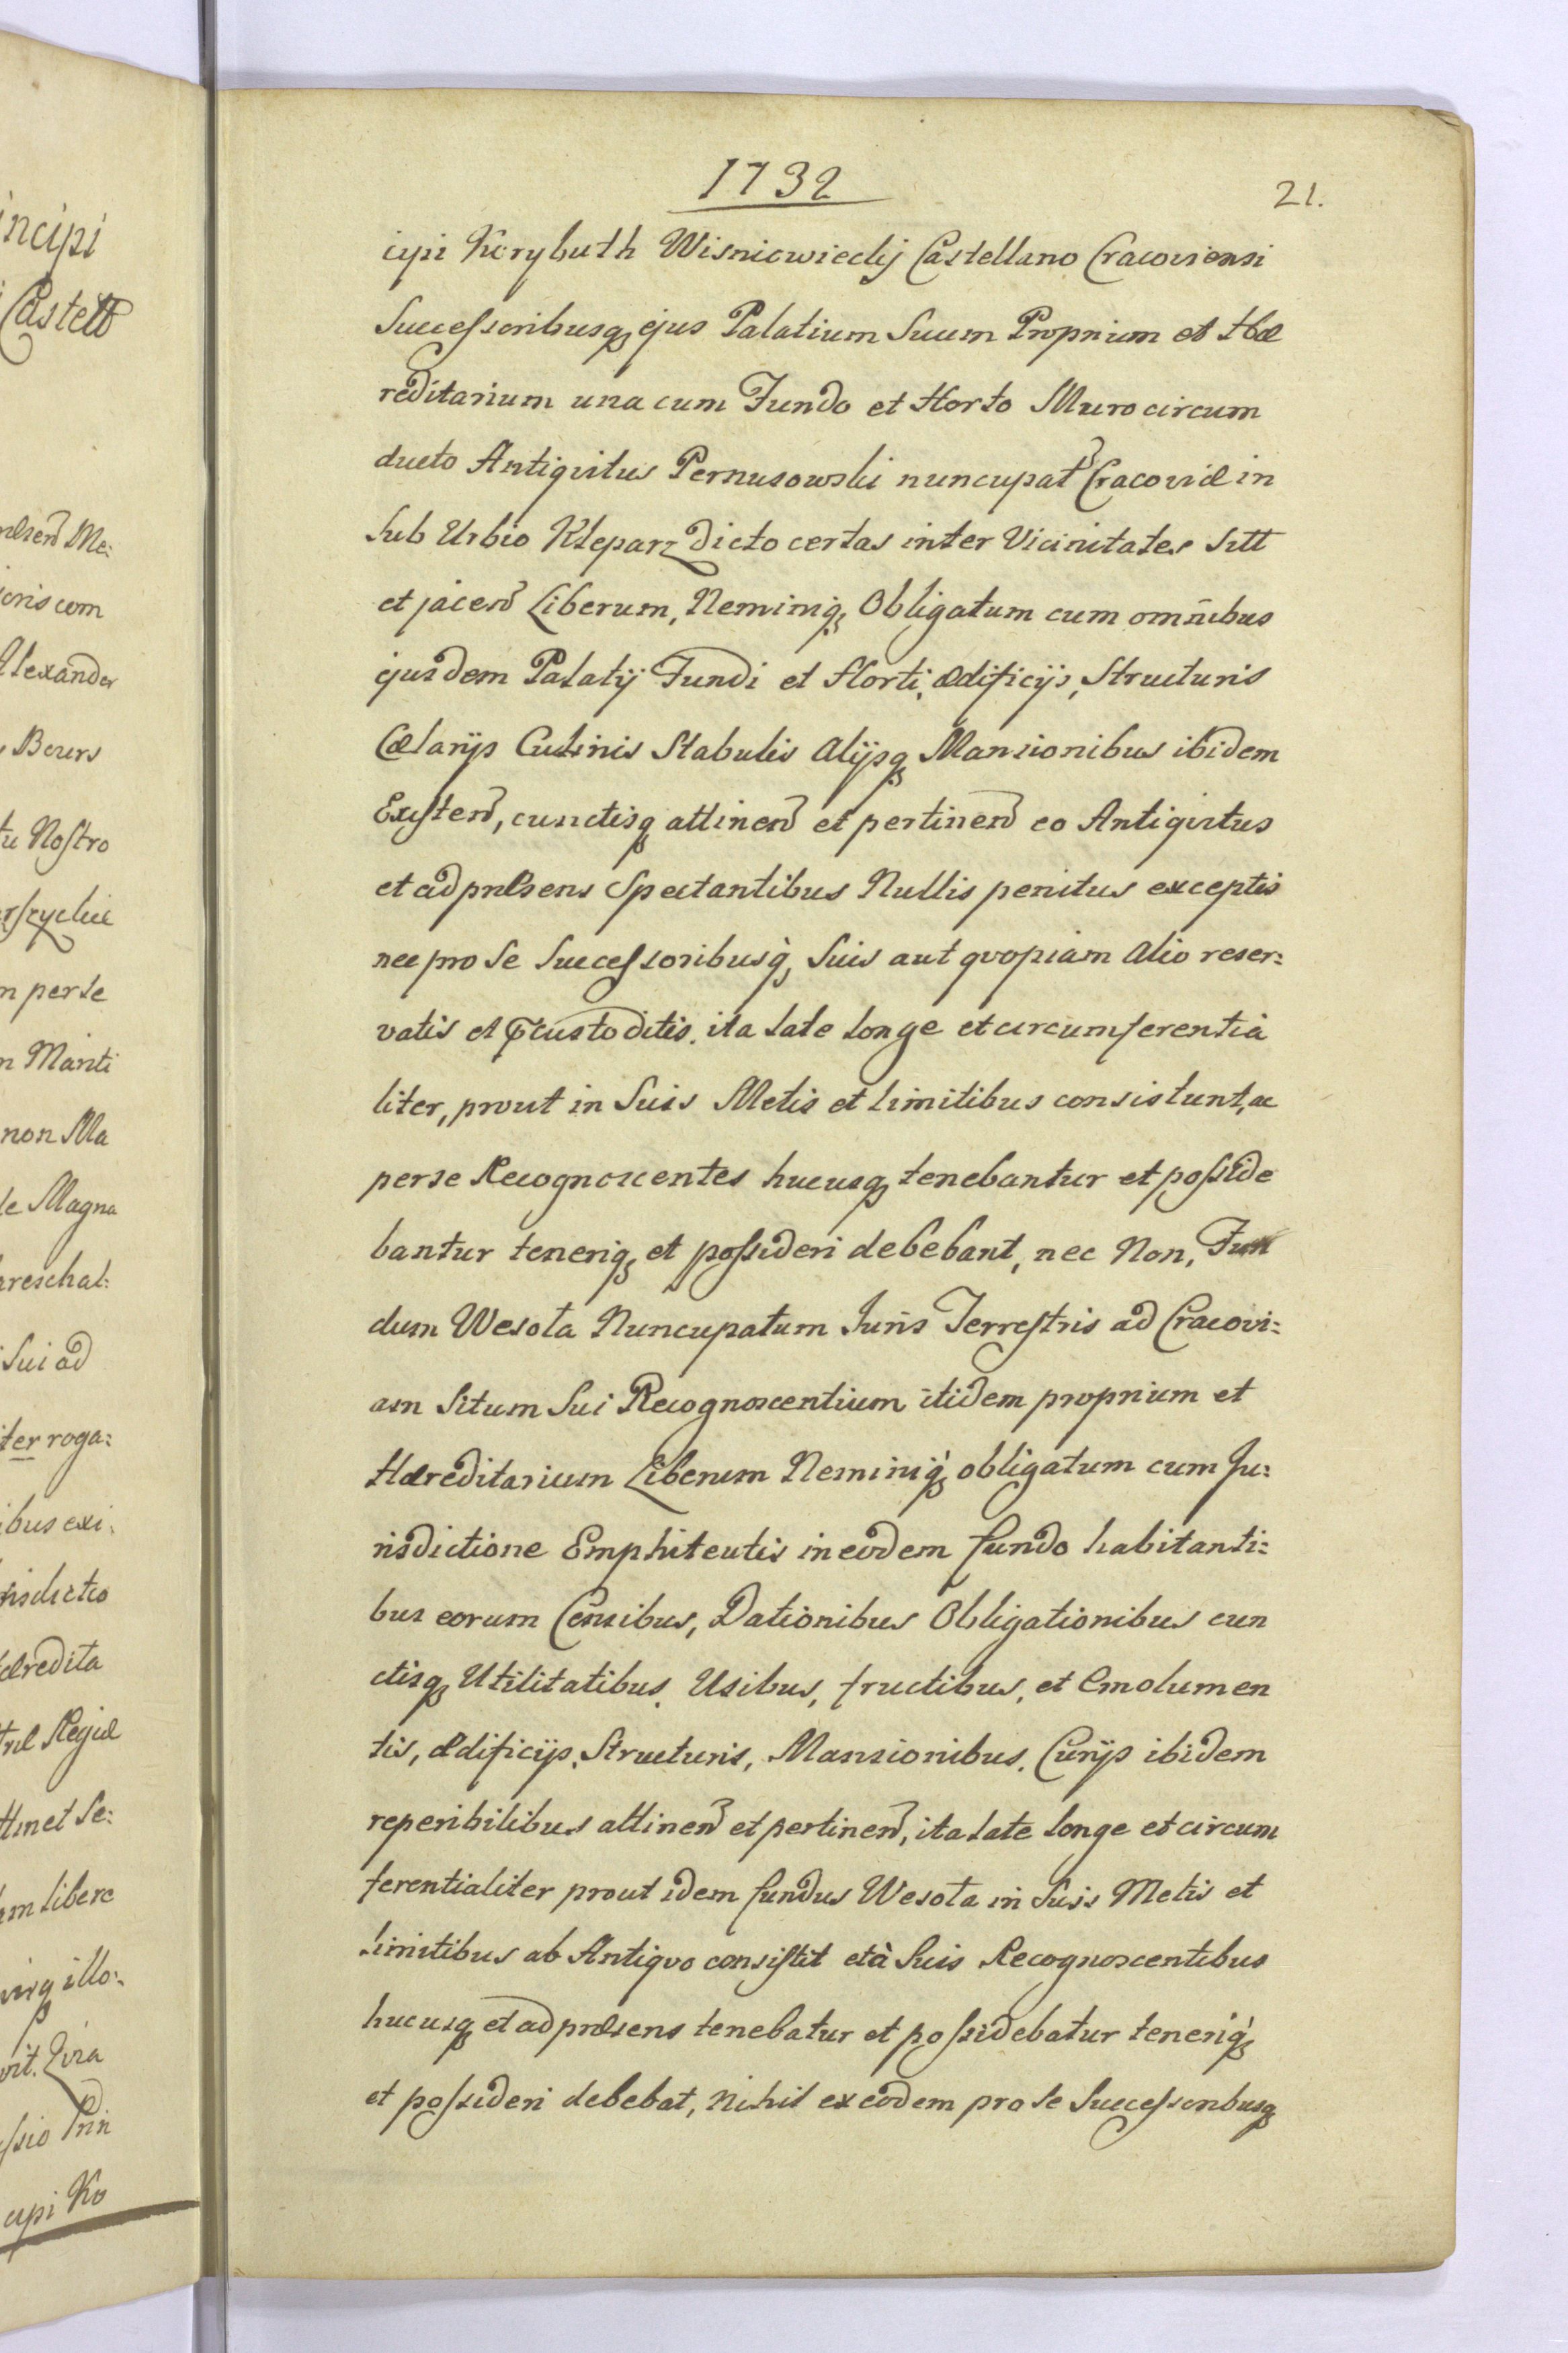 1732
21.
cipi Korybuth Wisniowiecky Castellano Cracoviensi
Successoribusq ejus Palatium Suum Proprium et Hæ
reditarium una cum Fundo et Horto Muro circum
ducto Antiqvitus Pernusowski nuncupat Cracoviæ in
Sub Urbio Kleparz dicto certas inter Vicinitates Sitt
et jacen Liberum, Neminiq Obligatum cum omnibus
ejusdem Palatij Fundi et Horti, ædificijs, Structuris
Cælarijs Culinis Stabulis Alijsq Mansionibus ibidem
Existen, cunctisq attinen et pertinen eo Antiqvitus
et ad præsens Spectantibus Nullis penitus exceptis
nec pro Se Successoribusq Suis aut qvopiam Alio reser:
vatis et custoditis. ita late longe et circumferentia
liter, prout in Suis Metis et limitibus consistunt, ac
per se Recognoscentes hucusq tenebantur et posside
bantur teneriq et possideri debebant, nec Non, Fun
dum Wesoła Nuncupatum Juris Terrestris ad Cracovi:
am Situm Sui Recognoscentium itidem proprium et
Hæreditarium Liberum Neminiq obligatum cum Ju:
risdictione Emphiteutis in eodem fundo habitanti:
bus eorum Censibus, Dationibus Obligationibus cun
ctisq Utilitatibus, Usibus, fructibus, et Emolumen
tis, ædificijs, Structuris, Mansionibus, Curijs ibidem
reperibilibus attinen et pertinen, ita late longe et circum
ferentialiter prout idem fundus Wesoła in Suis Metis et
limitibus ab Antiqvo consistit et à Suis Recognoscentibus
hucusq et ad præsens tenebatur et possidebatur teneriq
et possideri debebat, Nihil ex eodem pro se Successoribusq
incipi
Castell
Me:
com
Alexander
Nostro
per se
non Ma
Magna
areschal:
Sui ad
ter roga:
ibus exi:
ædita
Regiæ
et Se:
libere
illo:
Prin
cipi Ko